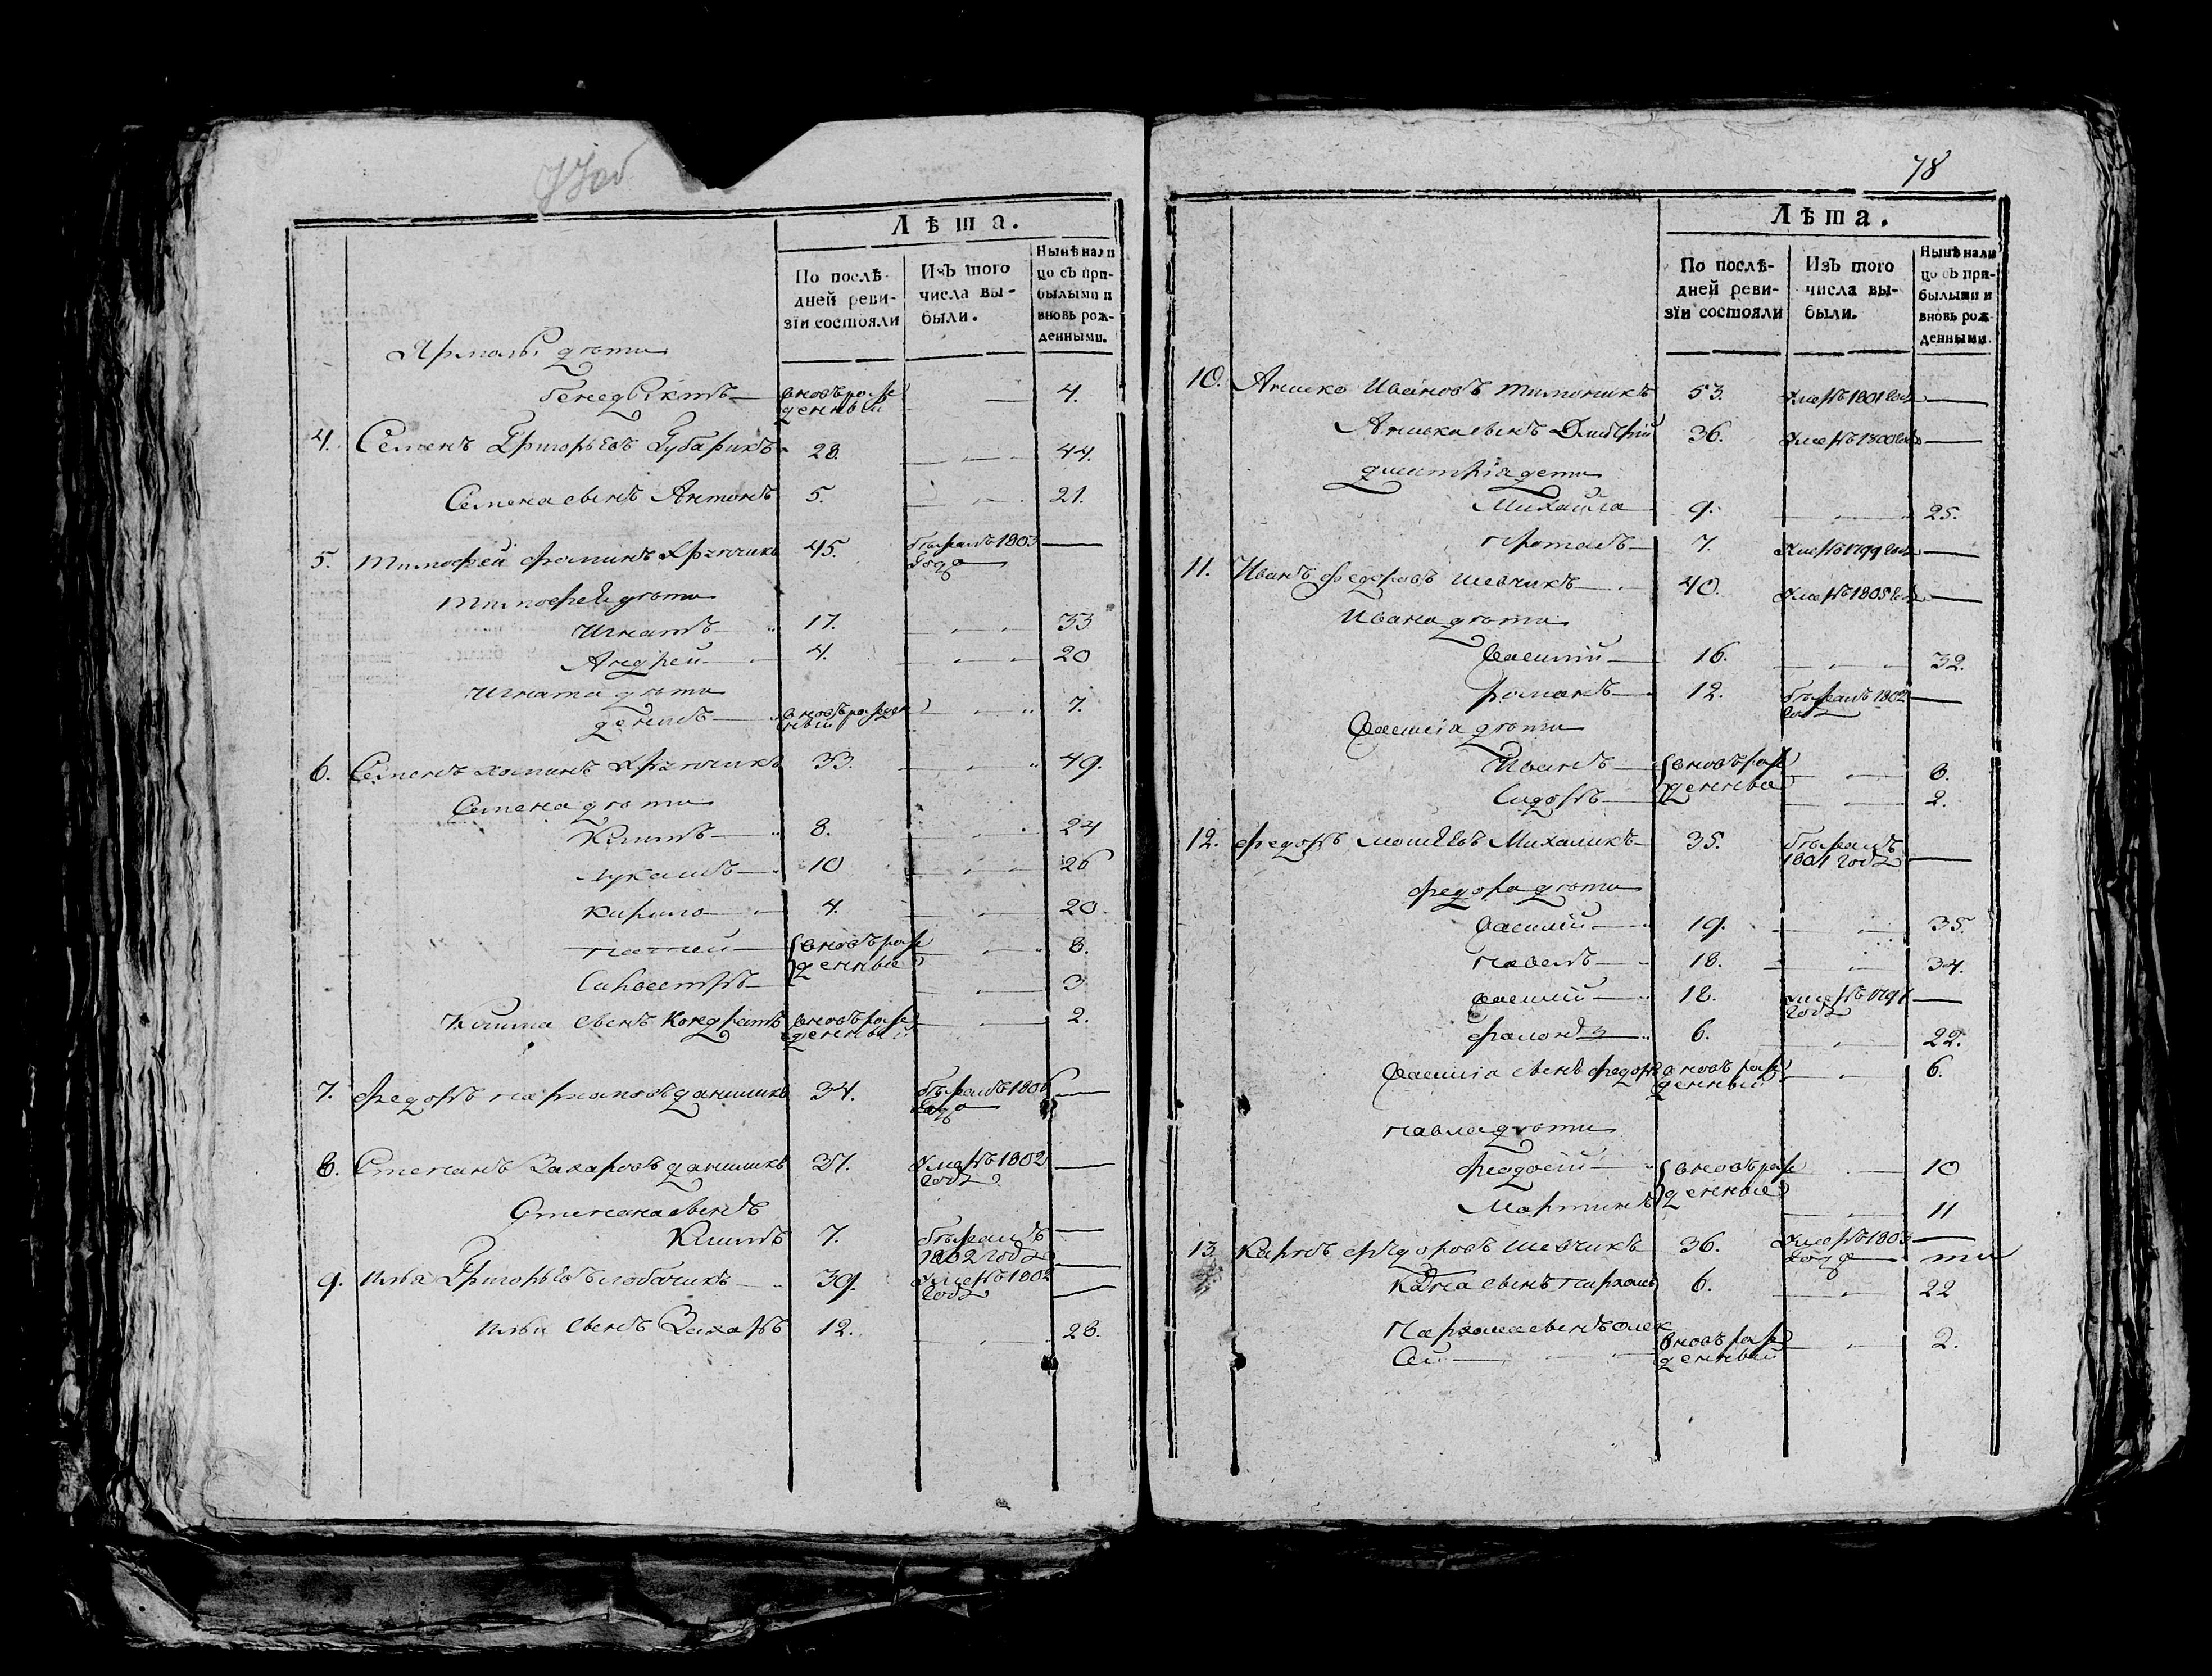 77об
Лѣта.
По послѣ-
дней реви-
зіи состояли
Изъ того
числа вы-
были.
Нынѣ нали
цо съ при-
былыми и
вновь рож-
денными.
Ярмолы дѣти
Бенедыктъ вновь рож 4.
денный
4. Семенъ Григорьевъ Губарикъ 28. 44.
Семена сынъ Антонъ 5. 21.
5. Тимофей Фоминъ 45. бѣжалъ 1803
года
Тимофея дѣти
Игнатъ 17. 33
Андрей 4. 20
Игната дѣти
Денисъ вновь рожде 7.
нный
6. Семенъ Хоминъ 33. 49.
Семена дѣти
Климъ 8. 24
Лукашъ 10 26
Кирило 4. 20
вновь рож 8.
денные
Силвестръ 3
Клима сынъ Кондратъ вновь рож 2.
денный
7. Федоръ даниликъ 34. бѣжалъ 1806
года
8. Степанъ Захаровъ даниликъ 37. Умеръ 1802
году
Степана сынъ
Климъ 7. бѣжалъ
1802 году
9. Илья Григорьевъ 39. Умеръ 1802
году
Ильи сынъ Захаръ 12. 28.
78
Лѣта.
По послѣ-
дней реви-
зіи состояли
Изъ того
числа вы-
были.
Нынѣ нали
цо съ при-
былыми и
вновь рож-
денными.
10. Ивановъ 53. Умеръ 1801 году
сынъ Дмитрій 36. Умеръ 1800 году
Дмитрія дети
Михайла 9. 25.
Потапъ 7. Умеръ 1799 году
11. Иванъ Федоровъ Шевчикъ 40. Умеръ 1805 году
Ивана дѣти
Василій 16. 32.
Романъ 12. бѣжалъ 1802
году
Василія дѣти
Иванъ вновь рож 8.
денные
Сидоръ 2.
12. Федоръ Михаликъ 35. бѣжалъ
1801 году
Федора дѣти
Василий 19. 35.
Павелъ 18. 34.
Василий 12. умеръ 1797
году
6. 22.
Василія сынъ Федоръ вновь рож 6.
денный
Павла дѣти
вновь рож 10
денные
Мартинъ 11
13. Карпъ Фѣдоровъ Шевчикъ 36. Умеръ 1803
года
сынъ Пархомъ 6. 22
Пархома сынъ Олек
сѣй вновь рож 2.
денный